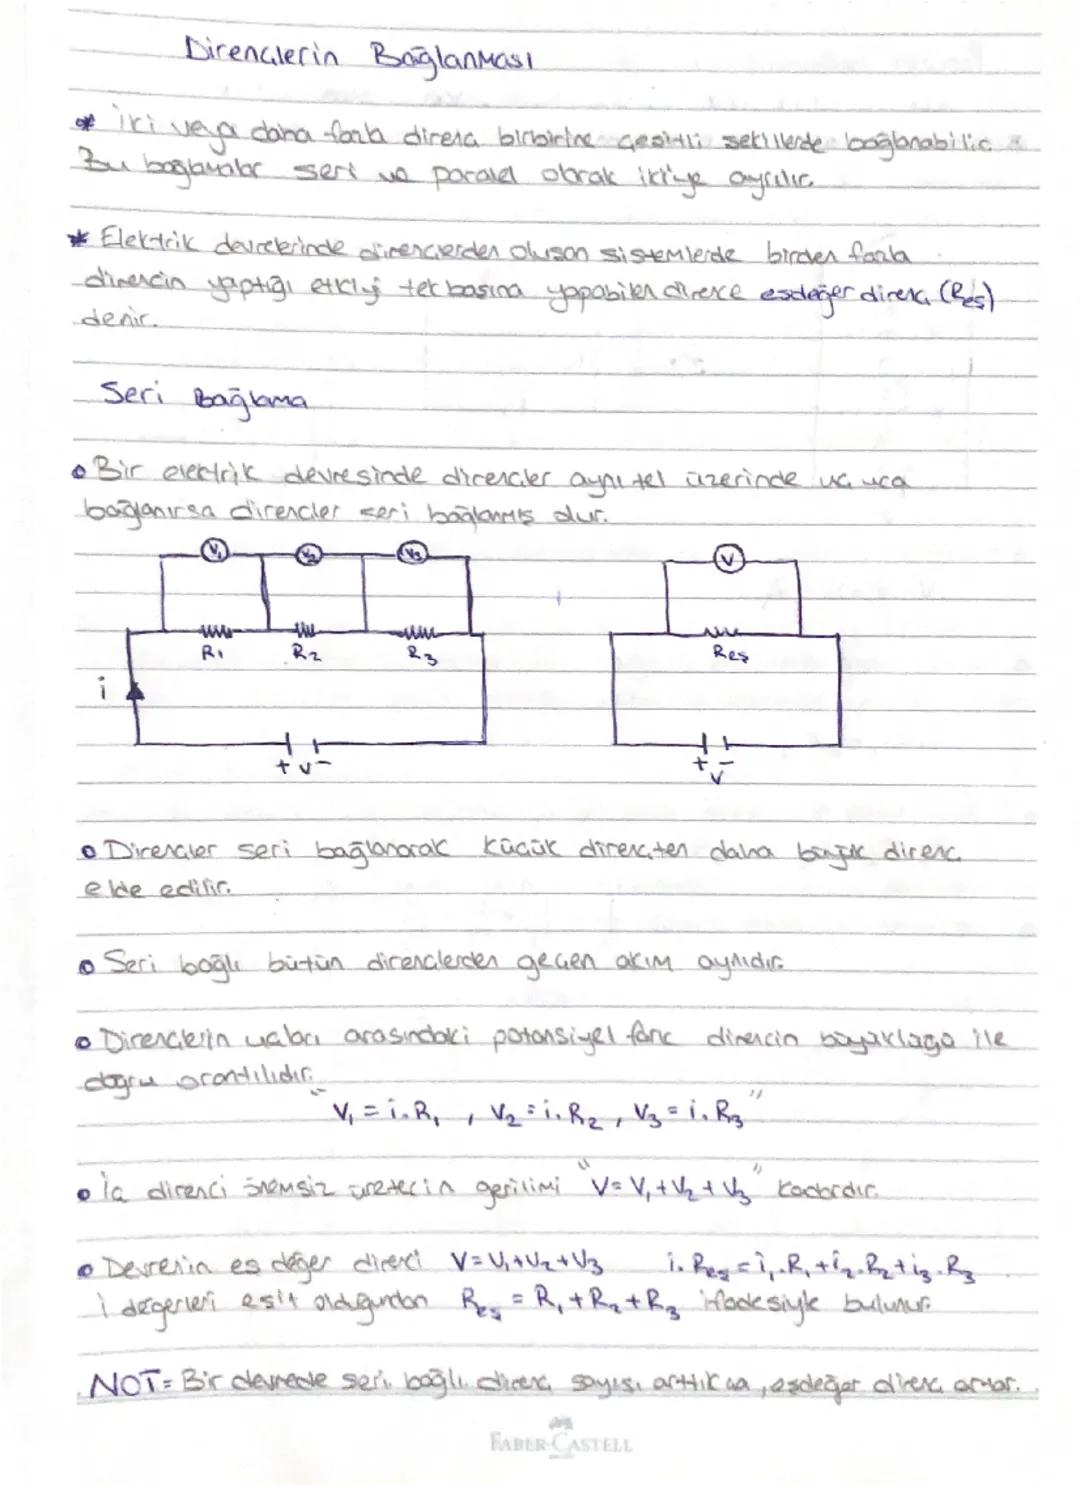 Dirençlerin Bağlanması
* İki veya daha fazla direnç birbirine çeşitli şekillerde bağlanabilir.
Bu bağlamalar seri ve paralel olarak iki'ye ayrılır.
* Elektrik devrelerinde dirençlerden oluşan sistemlerde birden fazla
direncin yaptığı etkiyi tek başına yapabilen dirence eşdeğer direnç (Reş)
denir.
Seri Bağlama
• Bir elektrik devresinde dirençler aynı tel üzerinde uç uca
bağlanırsa dirençler seri bağlanmış olur.
V₁ V₂ V₃ V
R₁ R₂ R₃ Reş
i
+ V - + V -
• Dirençler seri bağlanarak küçük dirençten daha büyük direnç
elde edilir.
• Seri bağlı bütün dirençlerden geçen akım aynıdır.
• Dirençlerin uçları arasındaki potansiyel fark direncin büyüklüğü ile
doğru orantılıdır.
"V₁ = i.R₁ , V₂ = i.R₂ , V₃ = i.R₃"
• İç direnci önemsiz üretecin gerilimi "V= V₁+V₂+V₃" kadardır.
• Devrenin eş değer direnci V=V₁+V₂+V₃ i.Reş = i₁.R₁+i₂.R₂+i₃.R₃
i değerleri eşit olduğundan Reş = R₁+R₂+R₃ ifadesiyle bulunur.
NOT= Bir devrede seri bağlı direnç sayısı arttıkça, eşdeğer direnç artar.
FABER-CASTELL